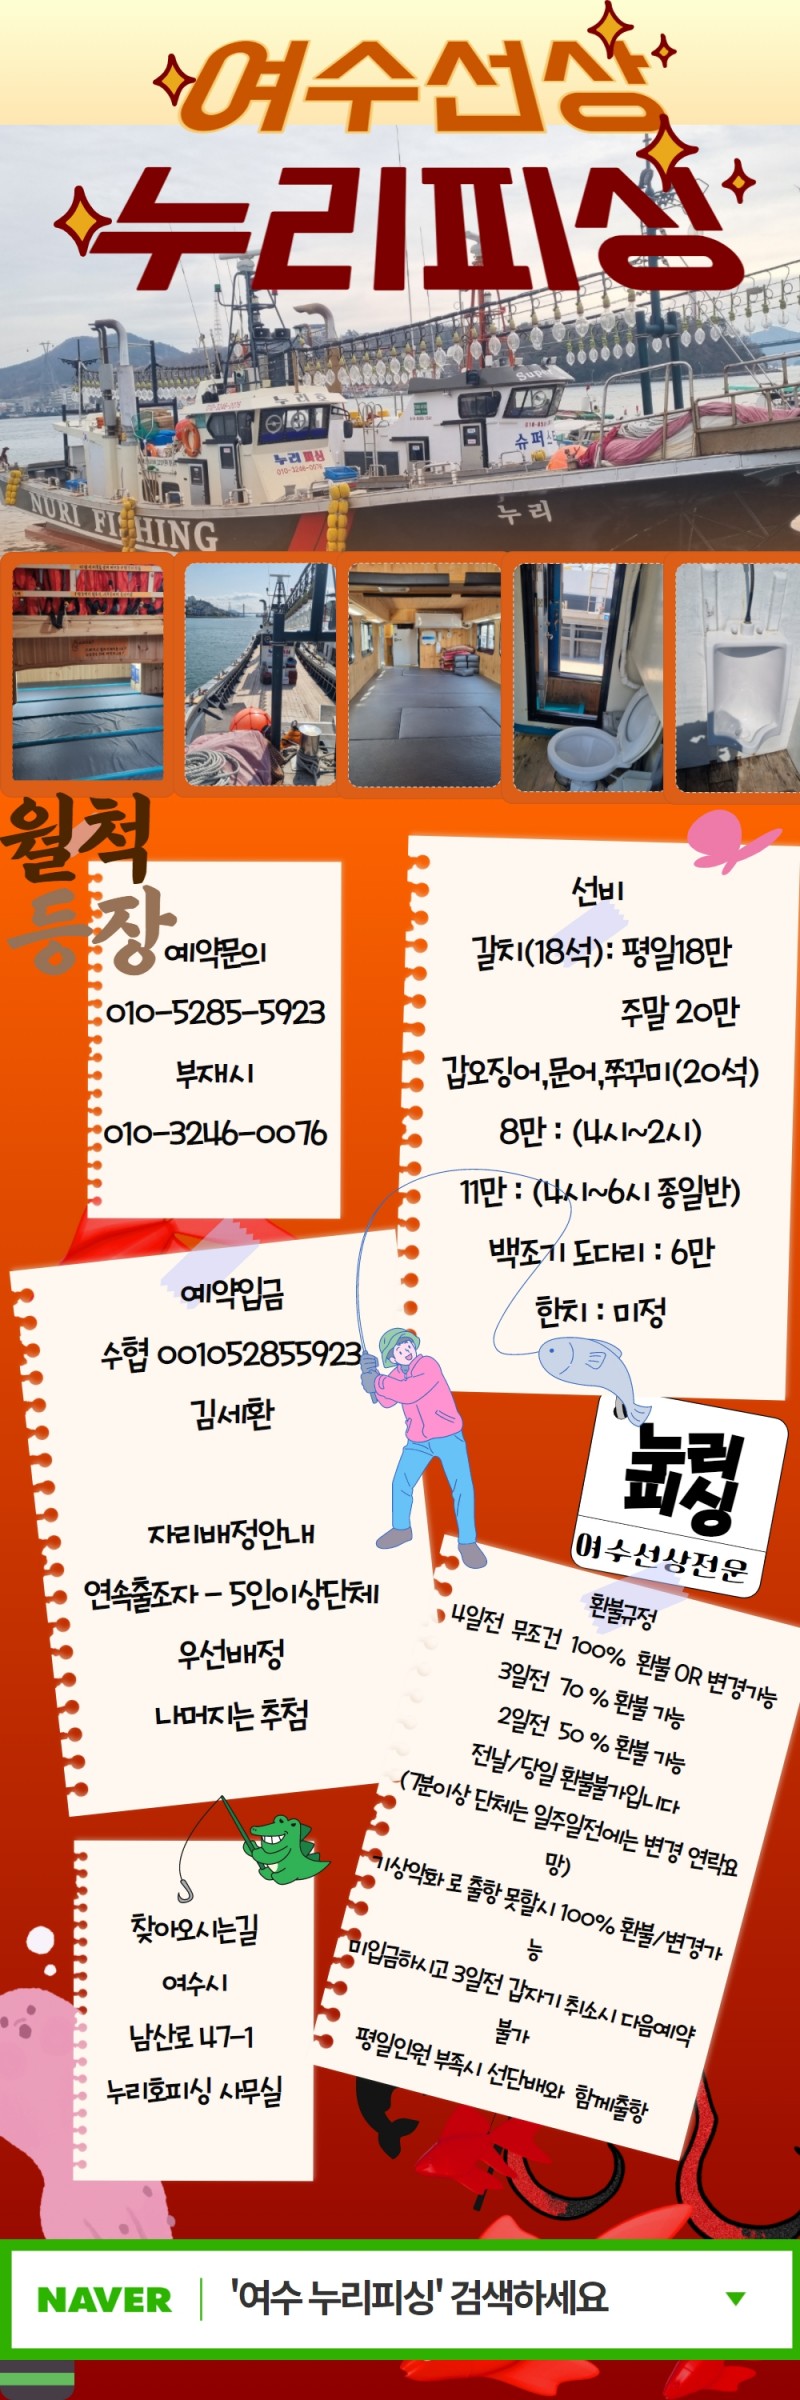 여수선상
누리피싱
누리호
누리피싱
010-3246-0076
슈퍼스
NURI FISHING
누리
월척
등장
예약문의
010-5285-5923
부재시
010-3246-0076
선비
갈치(18석): 평일18만
주말 20만
갑오징어,문어,쭈꾸미(20석)
8만 : (4시~2시)
11만 : (4시~6시 종일반)
백조기 도다리 : 6만
한치 : 미정
예약입금
수협 001052855923
김세환
자리배정안내
연속출조자 - 5인이상단체
우선배정
나머지는 추첨
누리
피싱
여수선상전문
환불규정
4일전 무조건 100% 환불 OR 변경가능
3일전 70 % 환불 가능
2일전 50 % 환불 가능
전날/당일 환불불가입니다
(7분이상 단체는 일주일전에는 변경 연락요
망)
기상악화 로 출항 못할시 100% 환불/변경가
능
미입금하시고 3일전 갑자기 취소시 다음예약
불가
평일인원 부족시 선단배와 함께출항
찾아오시는길
여수시
남산로 47-1
누리호피싱 사무실
NAVER
'여수 누리피싱' 검색하세요